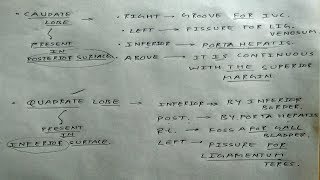 • CAUDATE LOBE
PRESENT IN POSTERIOR SURFACE.
• RIGHT → GROOVE FOR IVC.
• LEFT → FISSURE FOR LIG. VENOSUM
• INFERIOR → PORTA HEPATIS.
• ABOVE → IT IS CONTINUOUS WITH THE SUPERIOR MARGIN.
• QUADRATE LOBE
PRESENT IN INFERIOR SURFACE.
INFERIOR → BY INFERIOR BORDER.
POST. → BY PORTA HEPATIS
→ FOSSA FOR GALL BLADDER.
LEFT → FISSURE FOR LIGAMENTUM TERES.